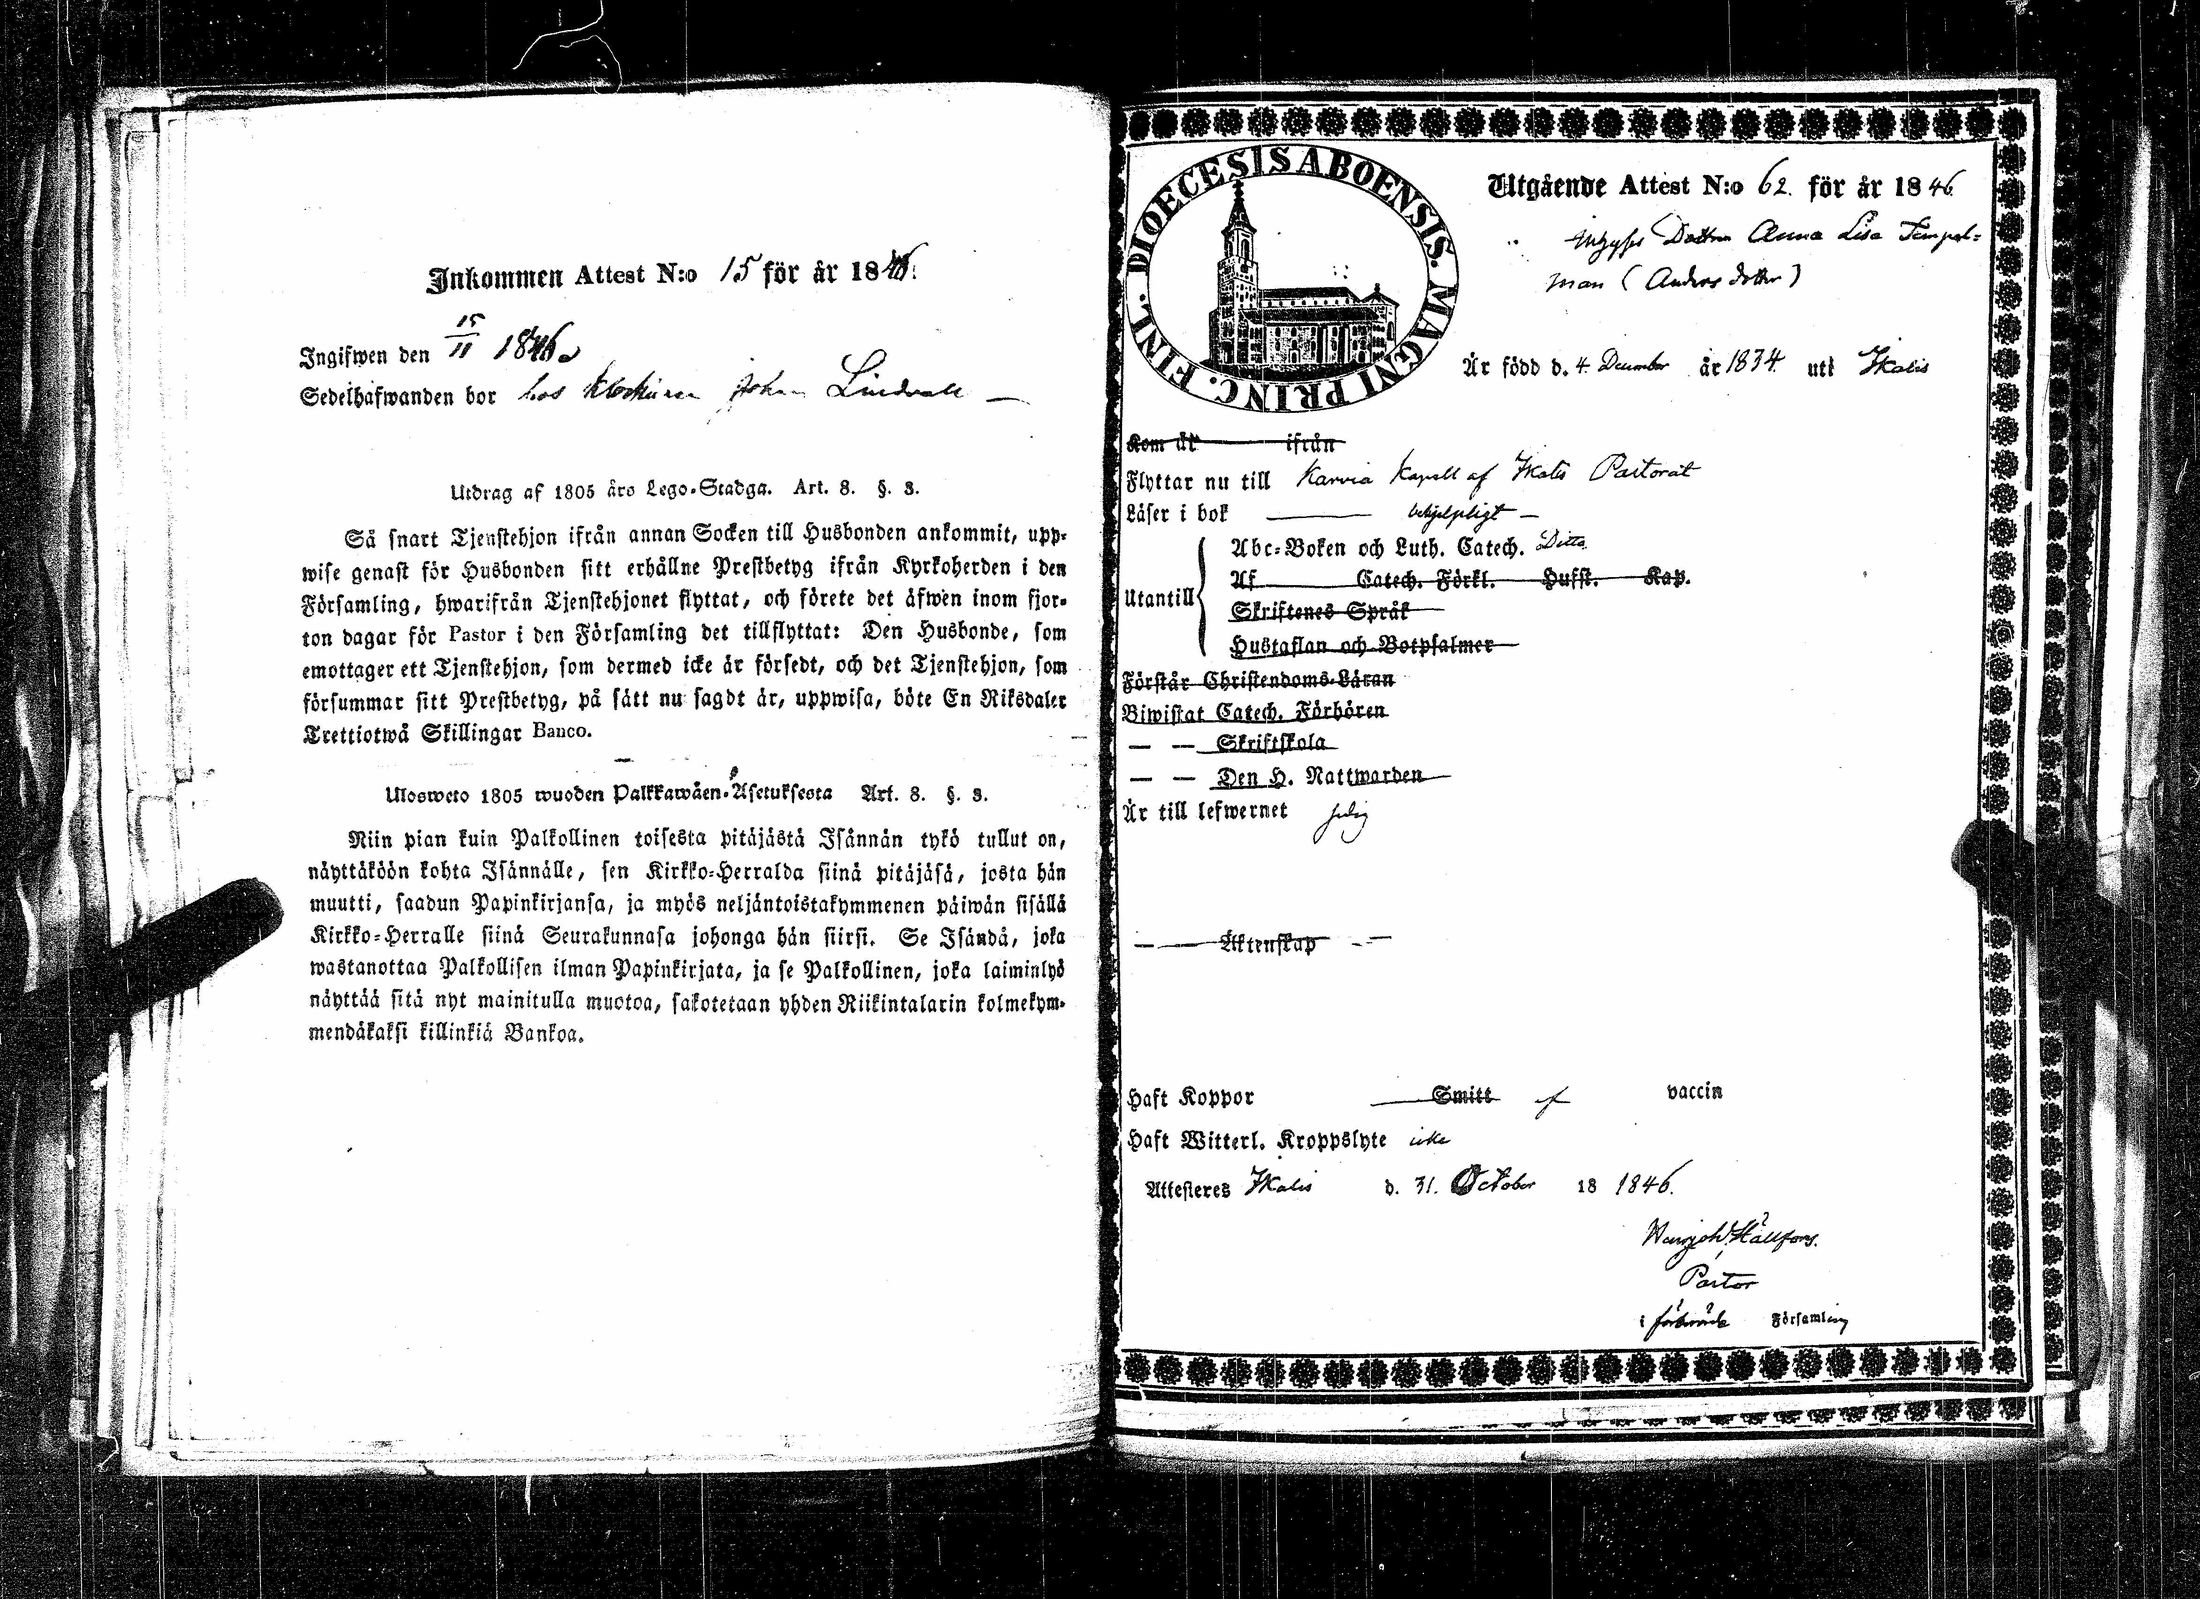 Inkommen Attest N:o 15 för år 1846.
Ingifwen den 15/11 1846
Sedelhafwanden bor hos Klockaren Johan Lindvall —
Utdrag af 1805 års Lego-Stadga. Art. 8. §. 3.
Så snart Tjenstehjon ifrån annan Socken till Husbonden ankommit, upp-
wise genast för Husbonden sitt erhållne Prestbetyg ifrån Kyrkoherden i den
Församling, hwarifrån Tjenstehjonet flyttat, och förete det äfwen inom fjor-
ton dagar för Pastor i den Församling det tillflyttat: Den Husbonde, som
emottager ett Tjenstehjon, som dermed icke är försedt, och det Tjenstehjon, som
försummar sitt Prestbetyg, på sätt nu sagdt är, uppwisa, böte En Riksdaler
Trettiotwå Skillingar Banco.
Ulosweto 1805 wuoden Palkkawäen-Asetuksesta Art. 8. §. 3.
Niin pian kuin Palkollinen toisesta pitäjästä Isännän tykö tullut on,
näyttäköön kohta Isännälle, sen Kirkko-Herralda siinä pitäjäsä, josta hän
muutti, saadun Papinkirjansa, ja myös neljäntoistakymmenen päiwän sisällä
Kirkko-Herralle siinä Seurakunnasa johonga hän siirsi. Se Isändä, joka
wastanottaa Palkollisen ilman Papinkirjata, ja se Palkollinen, joka laiminlyö
näyttää sitä nyt mainitulla muotoa, sakotetaan yhden Riikintalarin kolmekym-
mendäkaksi killinkiä Bankoa.
DIOECESIS ABOENSIS. MAGNI PRINC. FINL.
Utgående Attest N:o 62. för år 1846
Dottren Anna Lisa Tempel-
man (Andersdotter)
Är född d. 4. December år 1834. uti Ikalis
Kom år ifrån
Flyttar nu till Karvia Kapell af Ikalis Pastorat
Läser i bok — behjelpligt —
Utantill
Abc-Boken och Luth. Catech. Ditto
Af Catech. Förkl. Husst. Kap.
Skriftenes Språk
Hustaflan och Botpsalmer
Förstår Christendoms-Läran
Biwistat Catech. Förhören
— — Skriftskola
— — Den H. Nattwarden
Är till lefwernet
— — Äktenskap — —
Haft Koppor Smitt af vaccin
Haft Witterl. Kroppslyte icke
Attesteres Ikalis d. 31. October 18 1846.
Hällfors.
Pastor
i förberörde Församling